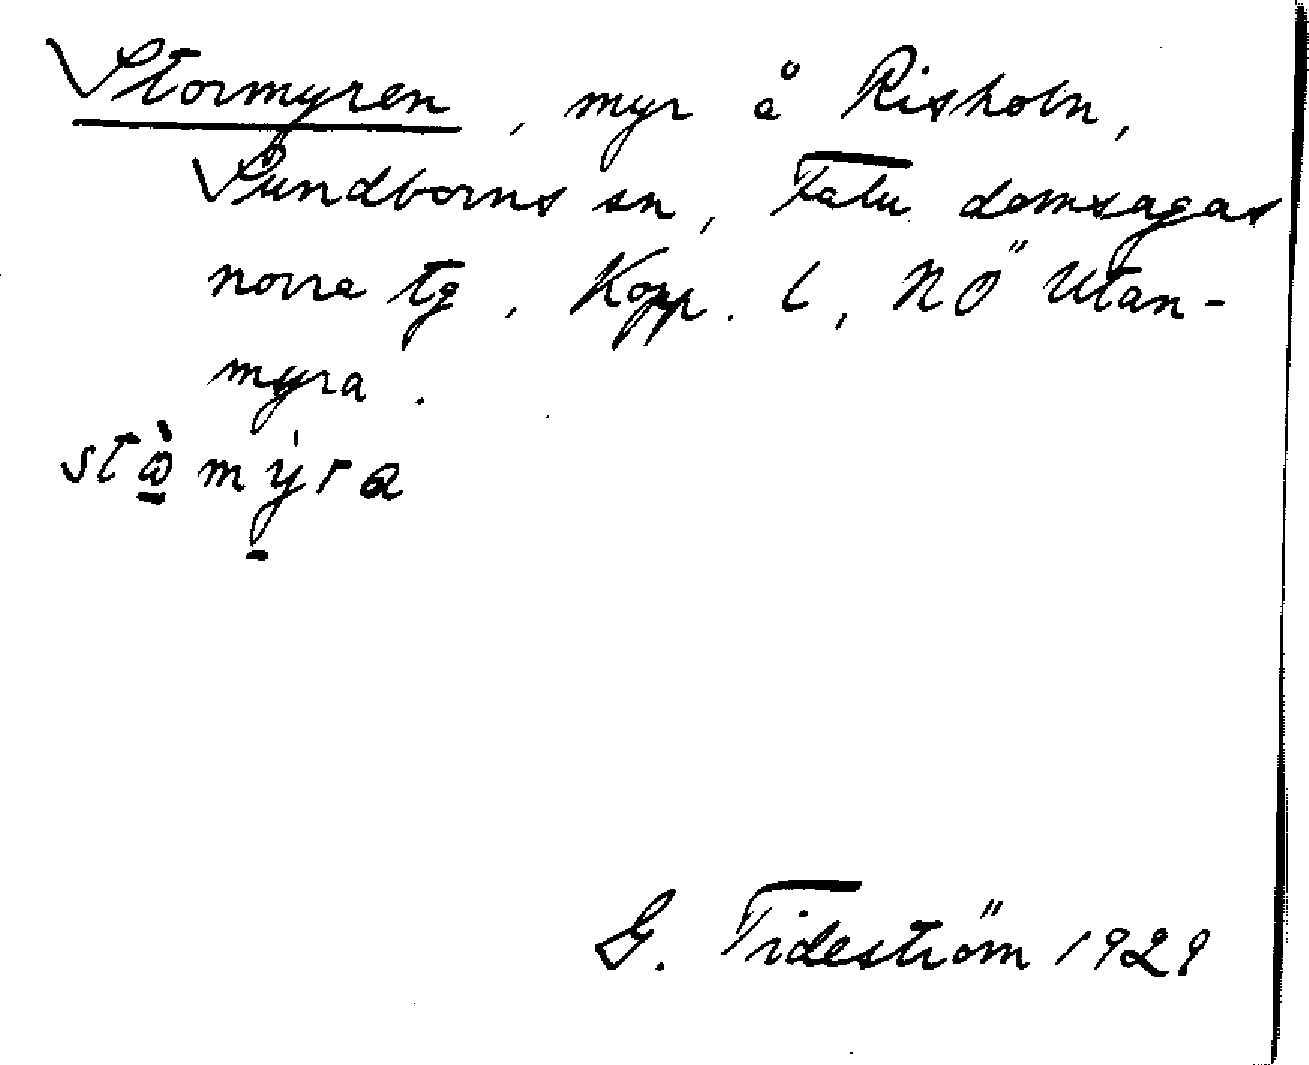 Stormyren, myr å Risholn,
Sundborns sn, Falu domsagas
norra tg, Kopp. l, NÖ Utan-
myra.
stɷ̠̀mẙ̠ra
G. Tideström 1929